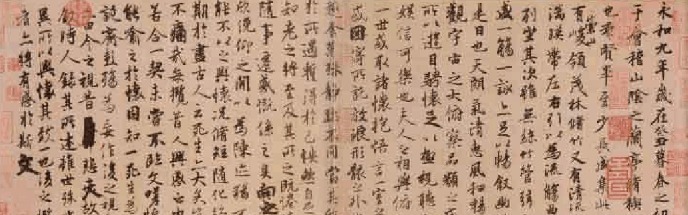 永和九年歲在癸丑暮春之初
于會稽山陰之蘭亭脩稧
也群賢畢至少長咸集此
有崇山峻領茂林脩竹又有清流
湍暎帶左右引以為流觴曲
列坐其次雖無絲竹管弦
盛一觴一詠亦足以暢敘幽
是日也天朗氣清惠風和暢
觀宇宙之大俯察品類之
所以遊目騁懷足以極視聽
娛信可樂也夫人之相與俯
一世或取諸懷抱悟言一室之
或因寄所託放浪形骸之外
趣舍萬殊靜躁不同當其
於所遇蹔得於己怏然自
知老之將至及其所之既惓
隨事遷感慨係之矣向之
欣俛仰之閒以為陳迹猶
能不以之興懷況脩短隨化
期於盡古人云死生亦大矣
不痛哉每攬昔人興感之由
若合一契未嘗不臨文嗟
能喻之於懷固知一死生
誕齊彭殤為妄作後之視
亦由今之視昔悲夫故
敘時人錄其所述雖世殊
異所以興懷其致一也後之攬
者亦將有感於斯文